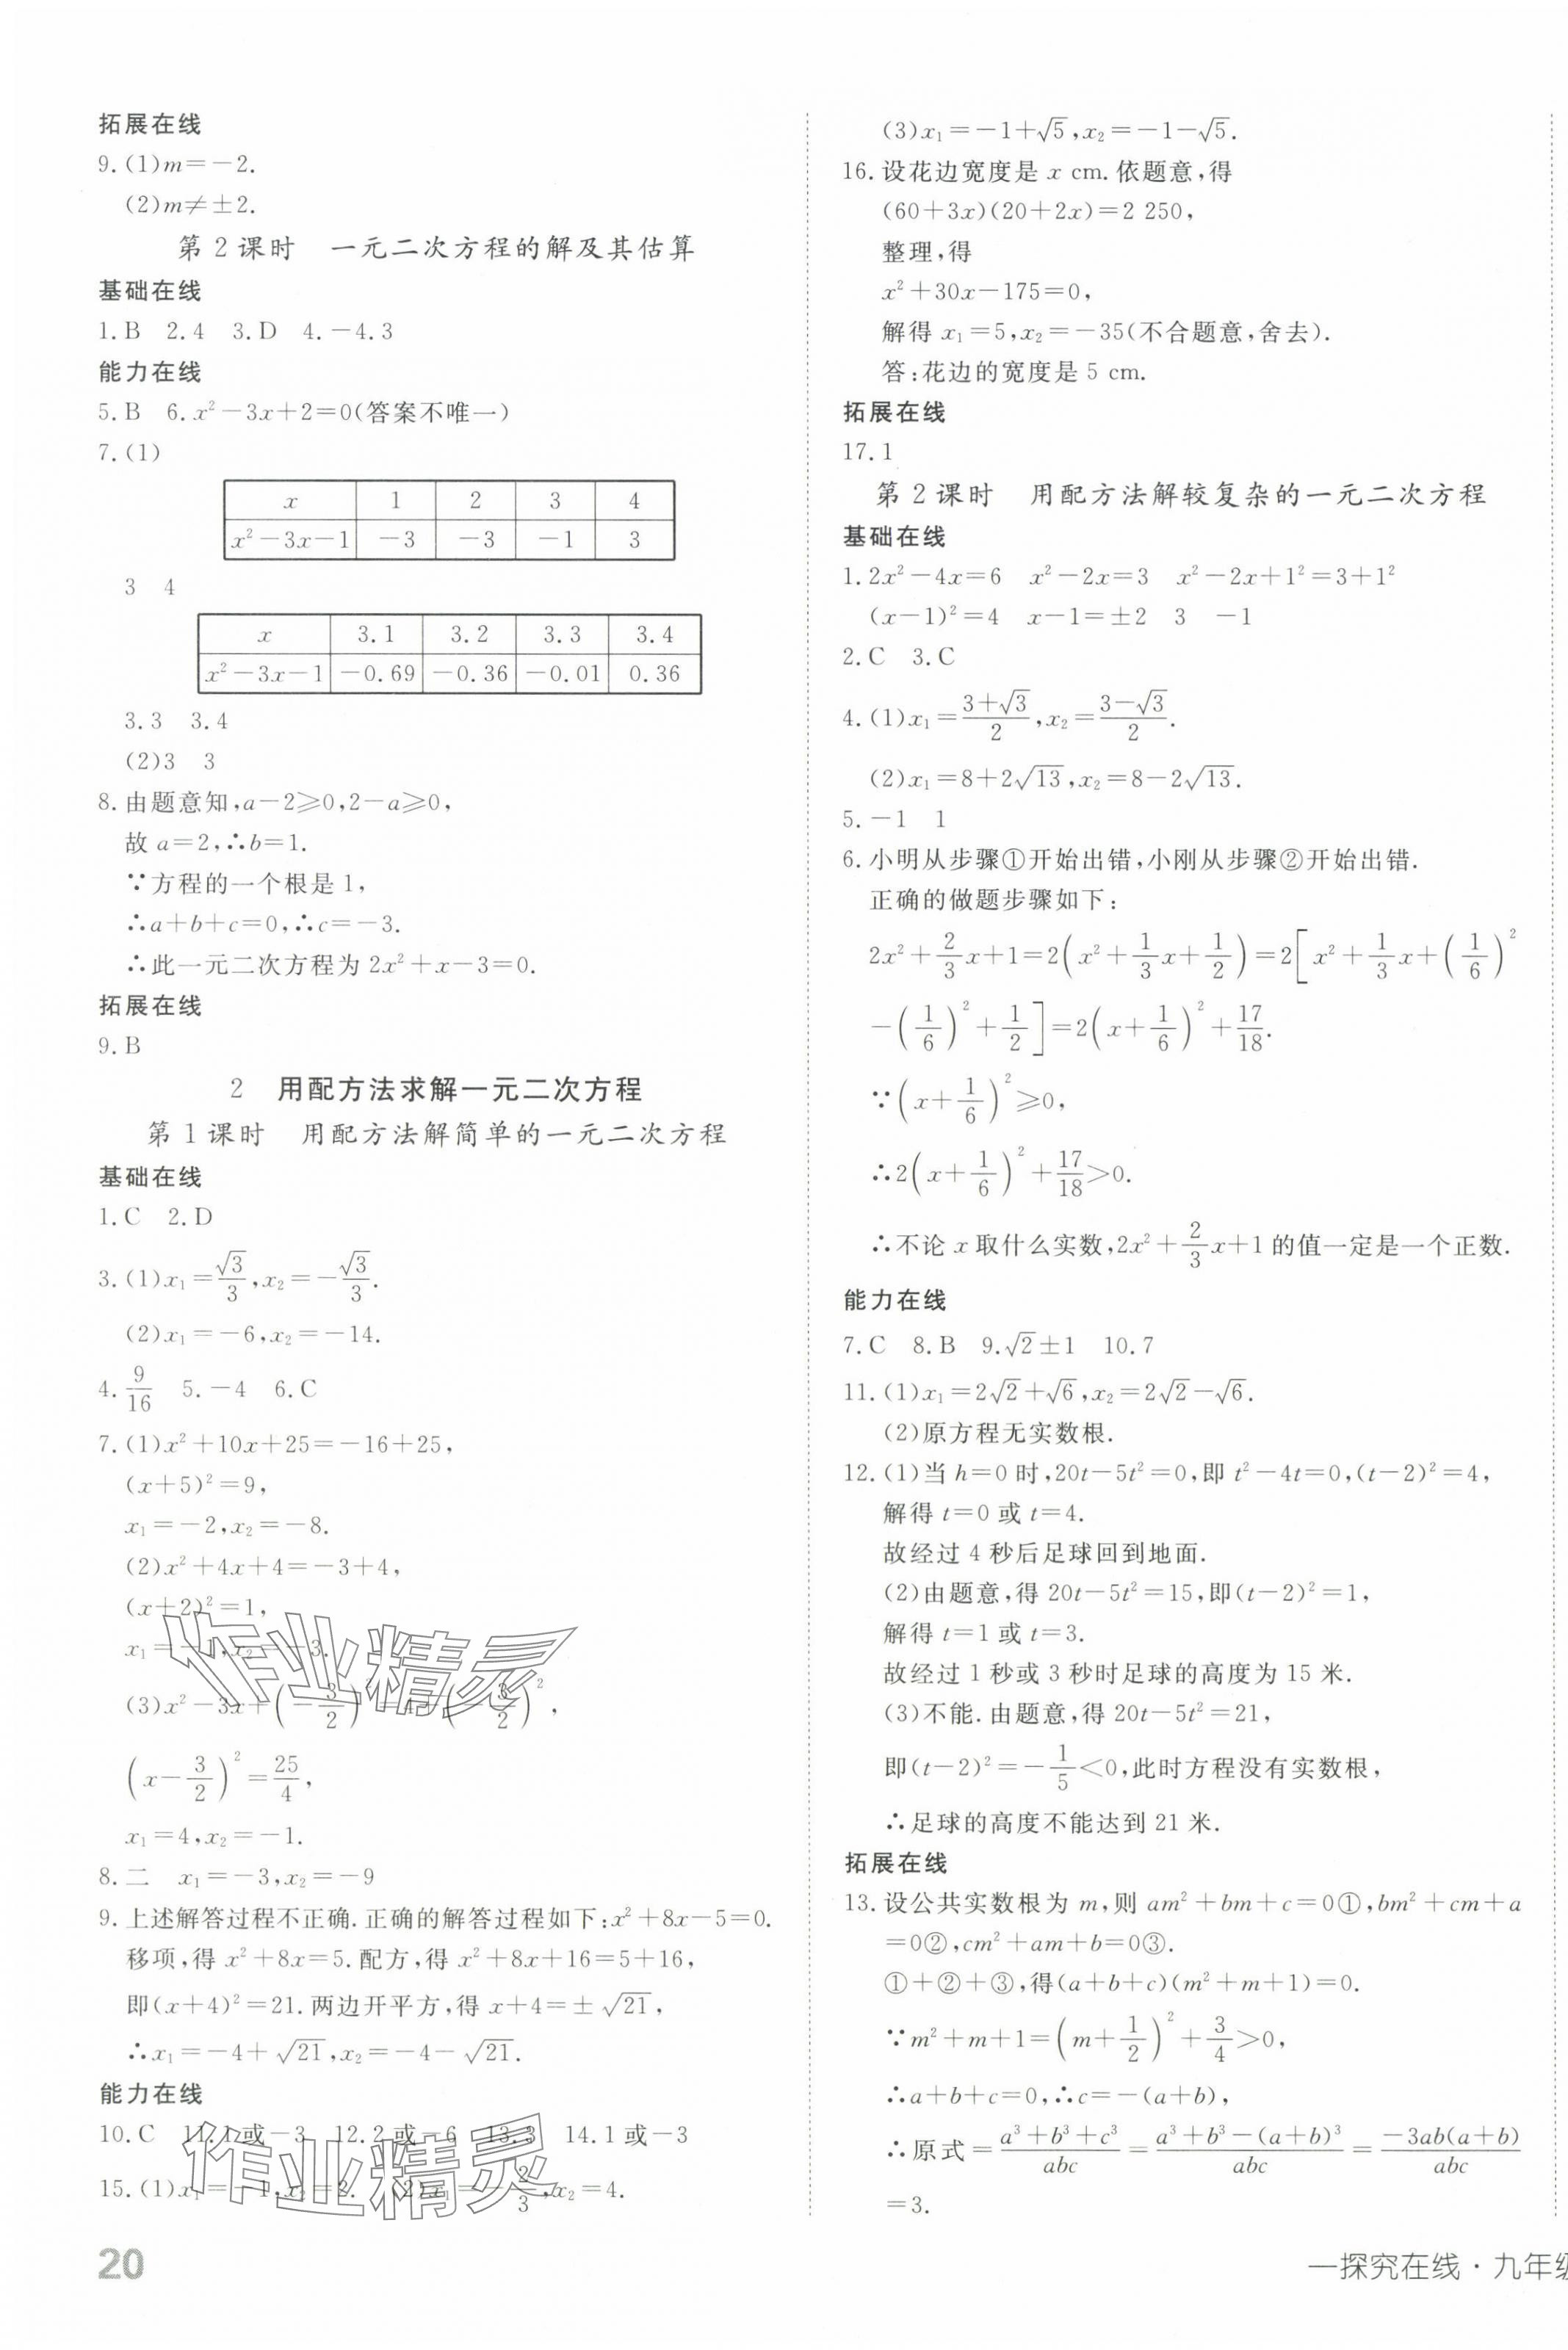 拓展在线
9.(1)m=-2.
(2)m≠±2.
第2课时　一元二次方程的解及其估算
基础在线
1.B　2.4　3.D　4.-4.3
能力在线
5.B　6.x²-3x+2=0(答案不唯一)
7.(1)
x　1　2　3　4
x²-3x-1　-3　-3　-1　3
3　4
x　3.1　3.2　3.3　3.4
x²-3x-1　-0.69　-0.36　-0.01　0.36
3.3　3.4
(2)3　3
8.由题意知,a-2≥0,2-a≥0,
故a=2,∴b=1.
∵方程的一个根是1,
∴a+b+c=0,∴c=-3.
∴此一元二次方程为2x²+x-3=0.
拓展在线
9.B
2　用配方法求解一元二次方程
第1课时　用配方法解简单的一元二次方程
基础在线
1.C　2.D
3.(1)x₁=√3/3,x₂=-√3/3.
(2)x₁=-6,x₂=-14.
4.9/16　5.-4　6.C
7.(1)x²+10x+25=-16+25,
(x+5)²=9,
x₁=-2,x₂=-8.
(2)x²+4x+4=-3+4,
(x+2)²=1,
x₁=-1,x₂=-3.
(3)x²-3x+(-3/2)²=4+(-3/2)²,
(x-3/2)²=25/4,
x₁=4,x₂=-1.
8.二　x₁=-3,x₂=-9
9.上述解答过程不正确.正确的解答过程如下:x²+8x-5=0.
移项,得x²+8x=5.配方,得x²+8x+16=5+16,
即(x+4)²=21.两边开平方,得x+4=±√21,
∴x₁=-4+√21,x₂=-4-√21.
能力在线
10.C　11.1或-3　12.2或-6　13.3　14.1或-3
15.(1)x₁=-1,x₂=2.　(2)x₁=-2/3,x₂=4.
20
(3)x₁=-1+√5,x₂=-1-√5.
16.设花边宽度是x cm.依题意,得
(60+3x)(20+2x)=2 250,
整理,得
x²+30x-175=0,
解得x₁=5,x₂=-35(不合题意,舍去).
答:花边的宽度是5 cm.
拓展在线
17.1
第2课时　用配方法解较复杂的一元二次方程
基础在线
1.2x²-4x=6　x²-2x=3　x²-2x+1²=3+1²
(x-1)²=4　x-1=±2　3　-1
2.C　3.C
4.(1)x₁=(3+√3)/2,x₂=(3-√3)/2.
(2)x₁=8+2√13,x₂=8-2√13.
5.-1　1
6.小明从步骤①开始出错,小刚从步骤②开始出错.
正确的做题步骤如下:
2x²+2/3x+1=2(x²+1/3x+1/2)=2[x²+1/3x+(1/6)²
-(1/6)²+1/2]=2(x+1/6)²+17/18.
∵(x+1/6)²≥0,
∴2(x+1/6)²+17/18>0.
∴不论x取什么实数,2x²+2/3x+1的值一定是一个正数.
能力在线
7.C　8.B　9.√2±1　10.7
11.(1)x₁=2√2+√6,x₂=2√2-√6.
(2)原方程无实数根.
12.(1)当h=0时,20t-5t²=0,即t²-4t=0,(t-2)²=4,
解得t=0或t=4.
故经过4秒后足球回到地面.
(2)由题意,得20t-5t²=15,即(t-2)²=1,
解得t=1或t=3.
故经过1秒或3秒时足球的高度为15米.
(3)不能.由题意,得20t-5t²=21,
即(t-2)²=-1/5<0,此时方程没有实数根,
∴足球的高度不能达到21米.
拓展在线
13.设公共实数根为m,则am²+bm+c=0①,bm²+cm+a
=0②,cm²+am+b=0③.
①+②+③,得(a+b+c)(m²+m+1)=0.
∵m²+m+1=(m+1/2)²+3/4>0,
∴a+b+c=0,∴c=-(a+b),
∴原式=(a³+b³+c³)/abc=(a³+b³-(a+b)³)/abc=(-3ab(a+b))/abc
=3.
—探究在线·九年级
作业精灵
作业精灵